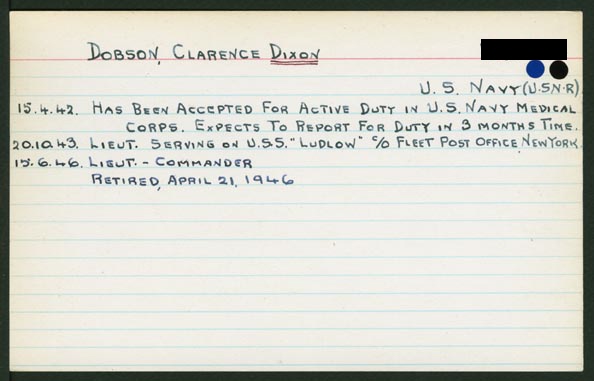 DOBSON, CLARENCE DIXON
U. S. NAVY (U.S.N.R)
15.4.42. HAS BEEN ACCEPTED FOR ACTIVE DUTY IN U.S. NAVY MEDICAL
CORPS. EXPECTS TO REPORT FOR DUTY IN 3 MONTHS TIME.
20.10.43. LIEUT. SERVING ON U.S.S. "LUDLOW" C/O FLEET POST OFFICE, NEW YORK.
15.6.46. LIEUT. - COMMANDER
RETIRED, APRIL 21, 1946